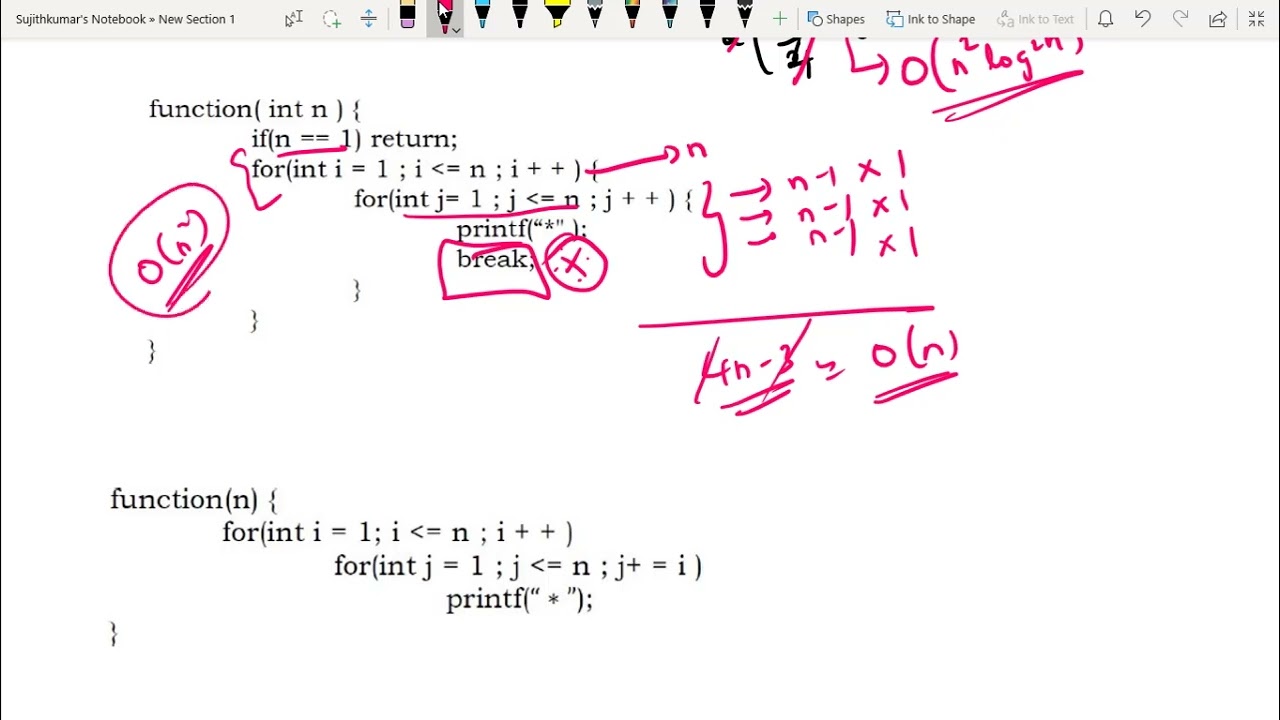 Sujithkumar's Notebook » New Section 1
Shapes
Ink to Shape
Ink to Text
O(n² log²n)
function( int n ) {
if(n == 1) return;
for(int i = 1 ; i <= n ; i + + ) { → n
for(int j= 1 ; j <= n ; j + + ) {
printf(“*" );
break; X
}
}
}
O(n²)
→ n-1 x 1
→ n-1 x 1
→ n-1 x 1
4n-3 ≈ O(n)
function(n) {
for(int i = 1; i <= n ; i + + )
for(int j = 1 ; j <= n ; j+ = i )
printf(“ * ”);
}